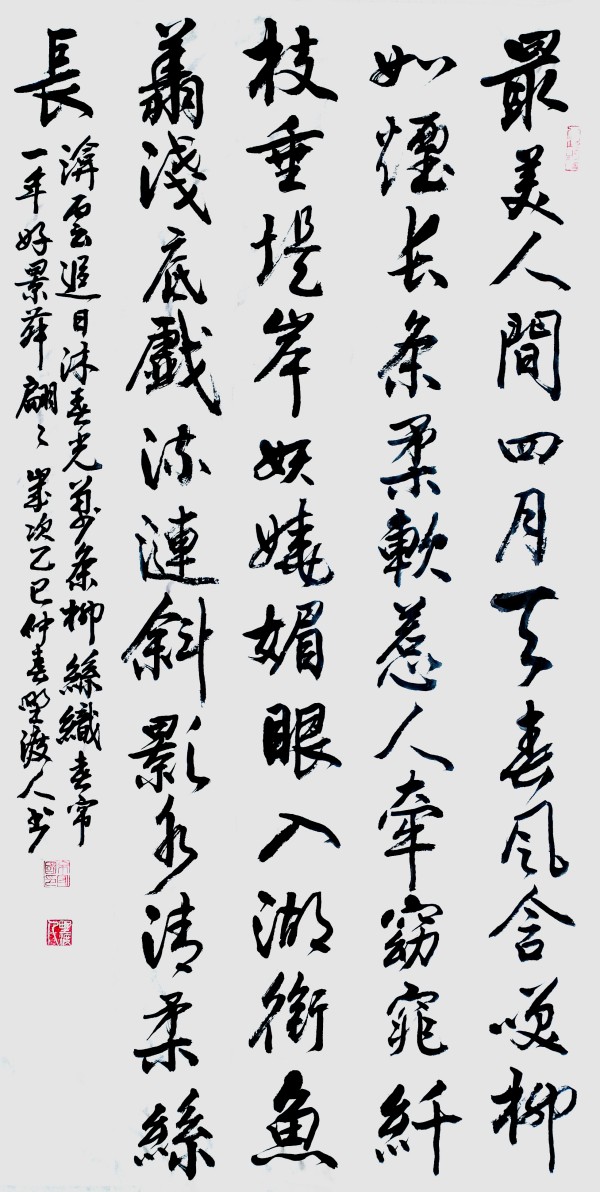 最美人間四月天春风含咲柳
如煙长条柔軟惹人牽窈窕纤
枝垂堤岸妖嬈媚眼入湖銜魚
淺底戲流漣斜影水清柔絲
長
雲遲日沐春光萬条柳絲織春帘
一年好景舞翩々歲次乙巳仲春野渡人书